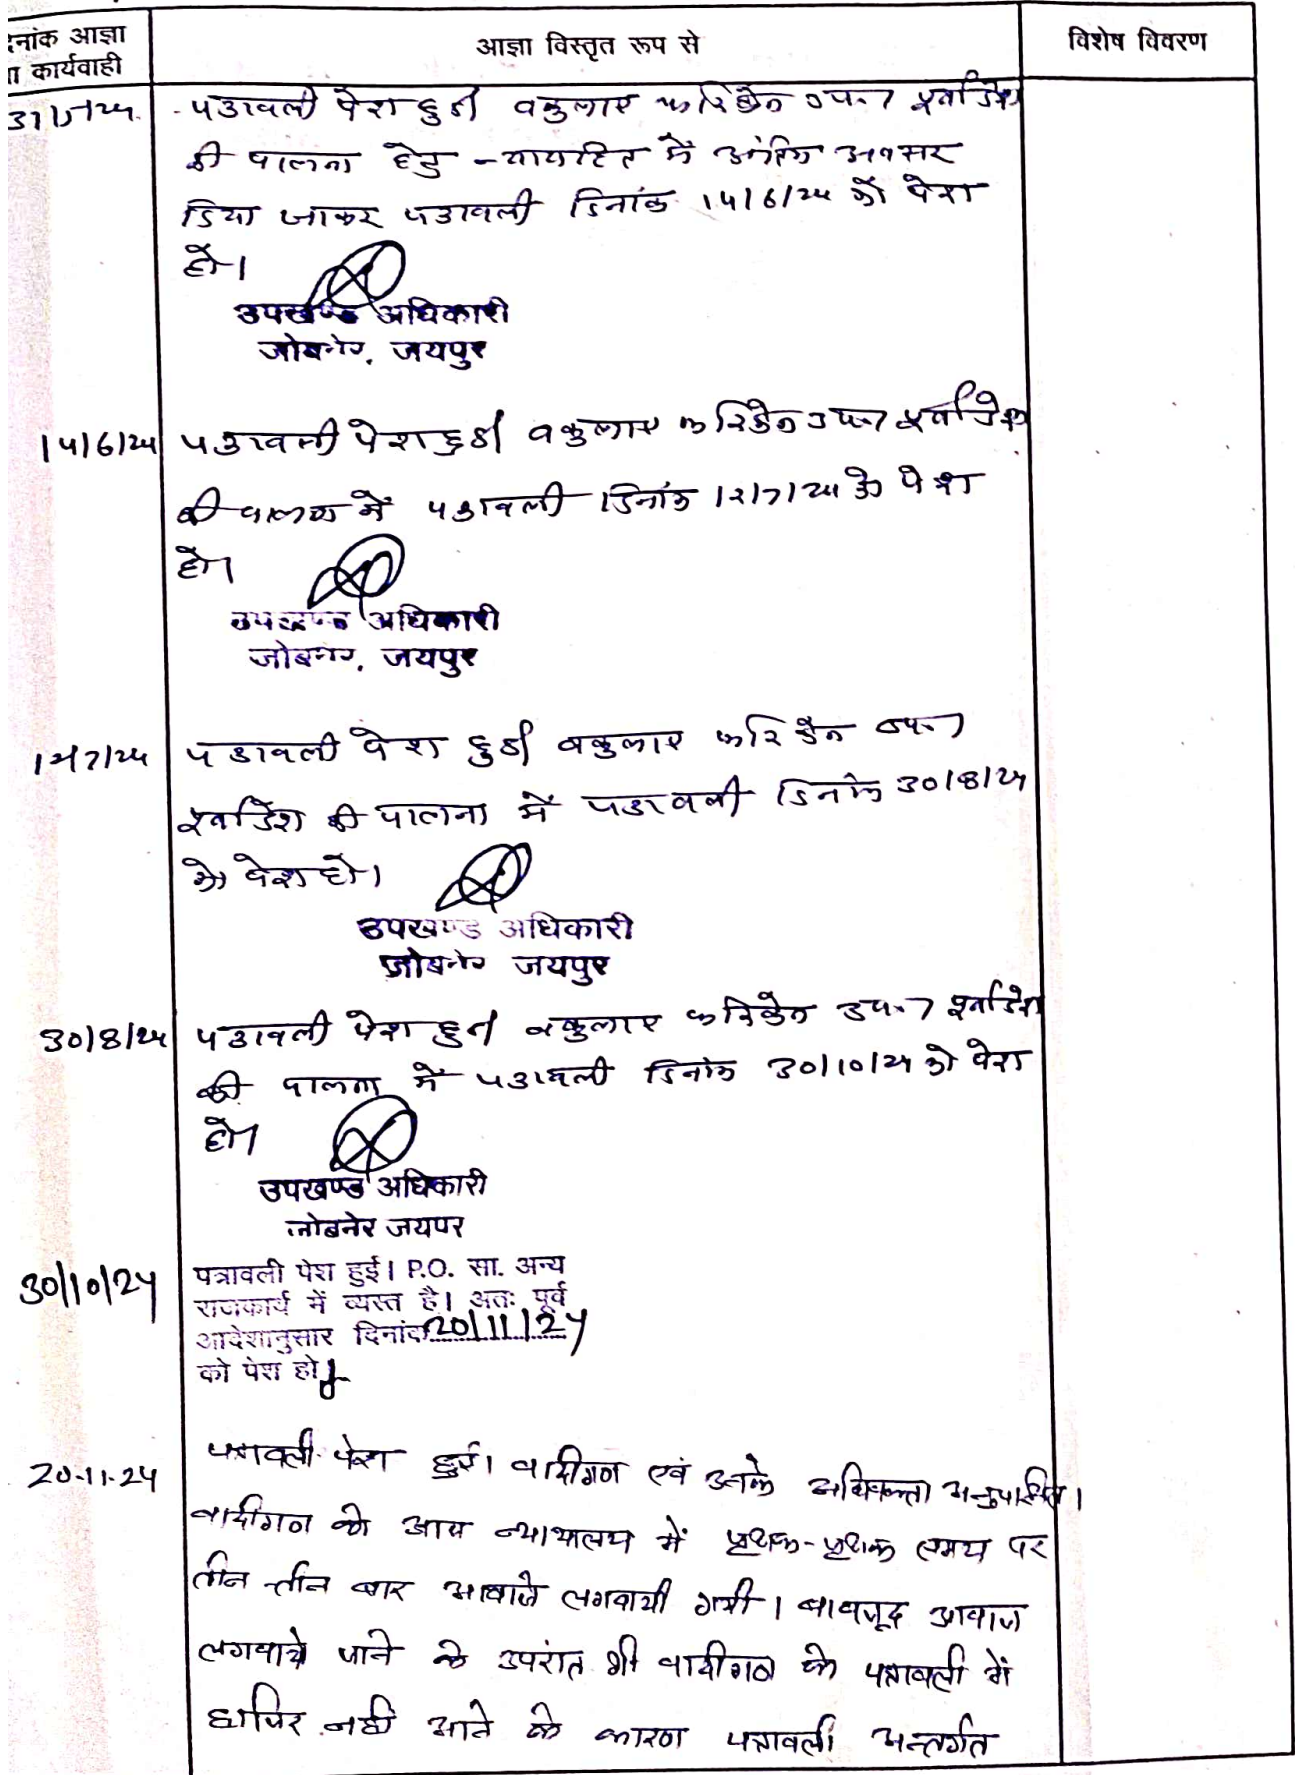 दिनांक आज्ञा
या कार्यवाही
आज्ञा विस्तृत रूप से
विशेष विवरण
31/5/24 पत्रावली पेश हुई वकुलाए फरिकेन उप. पूर्वादेश
की पालना हेतु न्यायहित में अंतिम अवसर
दिया जाकर पत्रावली दिनांक 14/6/24 को पेश
हो।
उपखण्ड अधिकारी
जोबनेर, जयपुर
14/6/24 पत्रावली पेश हुई वकुलाए फरिकेन उप. पूर्वादेश
की पालना में पत्रावली दिनांक 12/7/24 को पेश
हो।
उपखण्ड अधिकारी
जोबनेर, जयपुर
12/7/24 पत्रावली पेश हुई वकुलाए फरिकेन उप.
पूर्वादेश की पालना में पत्रावली दिनांक 30/8/24
को पेश हो।
उपखण्ड अधिकारी
जोबनेर जयपुर
30/8/24 पत्रावली पेश हुई वकुलाए फरिकेन उप. पूर्वादेश
की पालना में पत्रावली दिनांक 30/10/24 को पेश
हो।
उपखण्ड अधिकारी
जोबनेर जयपुर
30/10/24 पत्रावली पेश हुई। P.O. सा. अन्य
राजकार्य में व्यस्त है। अतः पूर्व
आदेशानुसार दिनांक 20/11/24
को पेश हो।
20-11-24 पत्रावली पेश हुई। वादीगण एवं उनके अधिवक्ता अनुपस्थित।
वादीगण को आज न्यायालय में पृथक-पृथक समय पर
तीन तीन बार आवाजे लगवायी गयी। बावजूद आवाज
लगवाये जाने के उपरांत भी वादीगण के पत्रावली में
हाजिर नही आने के कारण पत्रावली अन्तर्गत